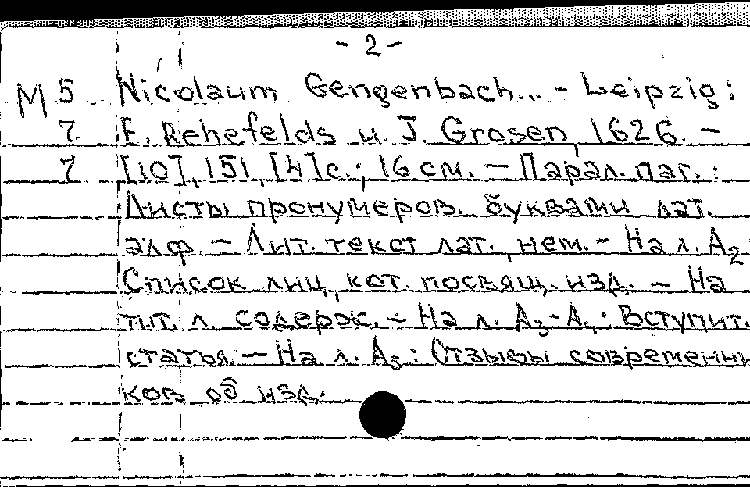 - 2 -
М 5 Nicolaum Gengenbach... - Leipzig:
7 E. Rehefelds u. J. Grosen, 1626. -
7 [10], 151, [4]с.; 16 см. - Парал. паг.:
Листы пронумеров. буквами лат.
алф. - Лит. текст лат., нем. - На л. A2
Список лиц, кот. посвящ. изд. - На
тит. л. содерж. - На л. A3-A4: Вступит.
статья. - На л. A5: Отзывы современни
ков об изд.